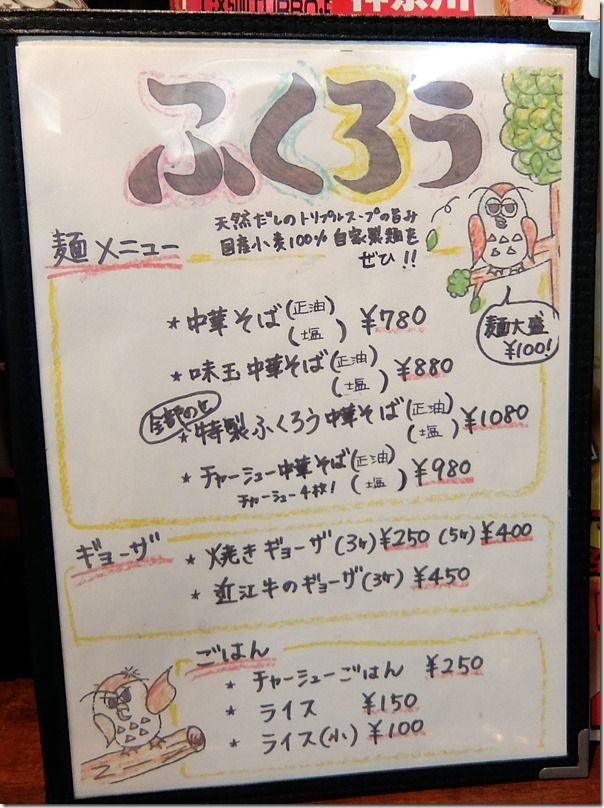 ふくろう
天然だしのトリプルスープの旨み
国産小麦100% 自家製麺を
ぜひ!!
麺メニュー
麺大盛
¥100!
★ 中華そば(正油)(塩) ¥780
★ 味玉中華そば(正油)(塩) ¥880
全部のせ
★ 特製ふくろう中華そば(正油)(塩) ¥1080
★ チャーシュー中華そば(正油)(塩) ¥980
チャーシュー4枚!
ギョーザ
★ 焼きギョーザ(3ヶ)¥250 (5ヶ)¥400
★ 近江牛のギョーザ(3ヶ) ¥450
ごはん
★ チャーシューごはん ¥250
★ ライス ¥150
★ ライス(小) ¥100